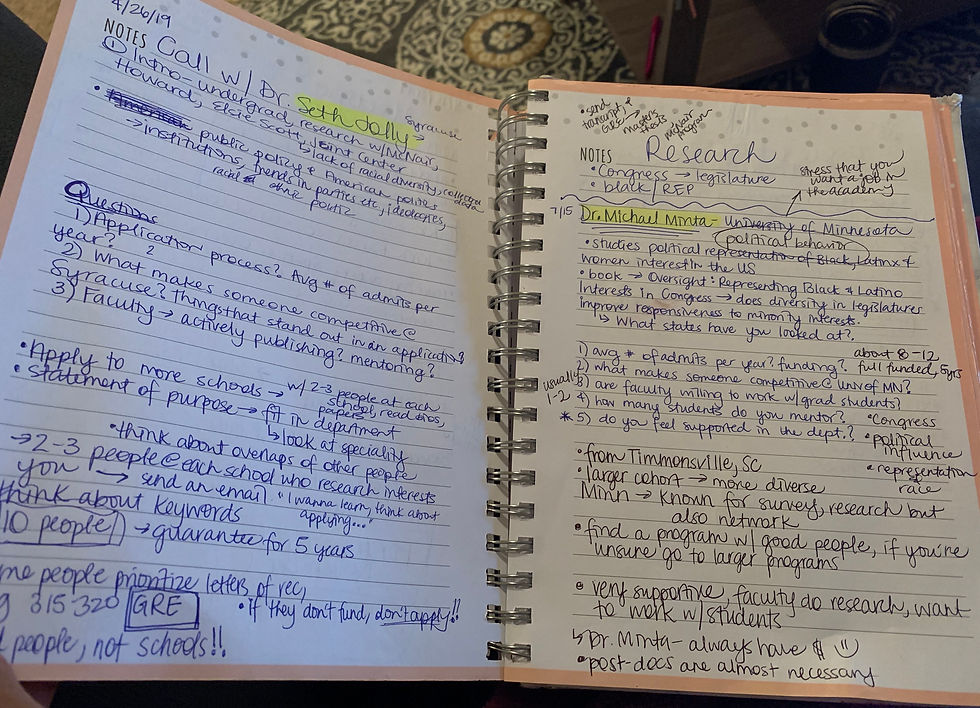 4/26/19
NOTES Call w/ Dr. Seth Jolly → Syracuse
① Intro - undergrad, research w/ McNair,
Howard, Elsie Scott, Joint Center
↳ lack of racial diversity, collected data
• public policy & American politics
→ institutions, trends in parties etc, ideologies,
racial & ethnic politic
Questions
1) Application process? Avg # of admits per
year? 2
2) What makes someone competitive @
Syracuse? Things that stand out in an application?
3) Faculty → actively publishing? mentoring?
• Apply to more schools → w/ 2-3 people at each
school, read bios,
papers
• statement of purpose → fit in department
↳ look at speciality
• think about overlaps of other people
→ 2-3 people @ each school who research interests
you → send an email "I wanna learn, think about
applying..."
think about keywords
10 people → guarantee for 5 years
me people prioritize letters of rec,
315-320 GRE
• if they don't fund, don't apply!!
people, not schools!!
• send
transcript, &
GRE → masters
thesis
McNair
NOTES Research
• Congress → legislature
• black/REP
stress that you
want a job in
the academy
7/15 Dr. Michael Minta - University of Minnesota
political behavior
• studies political representation of Black, Latinx &
women interest in the US
• book → Oversight: Representing Black & Latino
Interests in Congress → does diversity in legislatures
improve responsiveness to minority interests.
↳ What states have you looked at?
1) avg # of admits per year? funding? about 8-12
full funded, 5yrs
2) what makes someone competitive @ Univ of MN?
3) are faculty willing to work w/ grad students?
usually 1-2 4) how many students do you mentor?
* 5) do you feel supported in the dept.?
• Congress
• political
influence
• representation
race
• from Timmonsville, SC
• larger cohort → more diverse
Minn → known for survey, research but
also network
• find a program w/ good people, if you're
unsure go to larger programs
• very supportive, faculty do research, want
to work w/ students
↳ Dr. Minta - always have $ :)
• post-docs are almost necessary